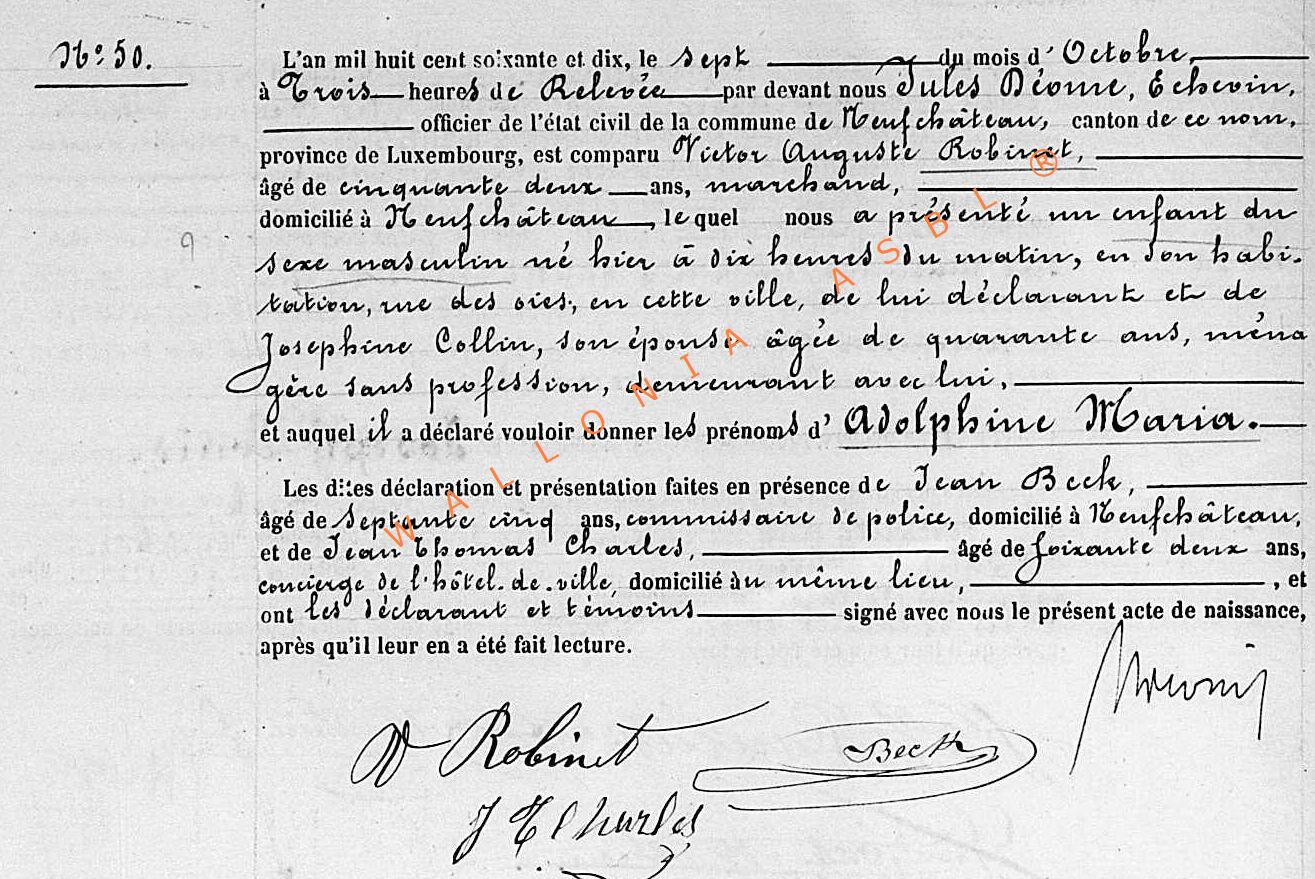 N° 50.
L'an mil huit cent soixante et dix, le sept du mois d'Octobre,
à Trois heures de Relevée par devant nous Jules Déome, Echevin,
officier de l'état civil de la commune de Neufchâteau, canton de ce nom,
province de Luxembourg, est comparu Victor Auguste Robinet,
âgé de cinquante deux ans, marchand,
domicilié à Neufchâteau, le quel nous a présenté un enfant du
sexe masculin né hier à dix heures du matin, en son habi-
tation, rue des oies, en cette ville, de lui déclarant et de
Josephine Collin, son épouse âgée de quarante ans, ména
gère sans profession, demeurant avec lui,
et auquel il a déclaré vouloir donner les prénoms d'Adolphine Maria.
Les dites déclaration et présentation faites en présence de Jean Beck,
âgé de septante cinq ans, commissaire de police, domicilié à Neufchâteau,
et de Jean Thomas Charles, âgé de soixante deux ans,
concierge de l'hôtel-de-ville, domicilié au même lieu, et
ont les déclarant et témoins signé avec nous le présent acte de naissance,
après qu'il leur en a été fait lecture.
V Robinet Beck
J T Charles
WALLONIA ASBL ®